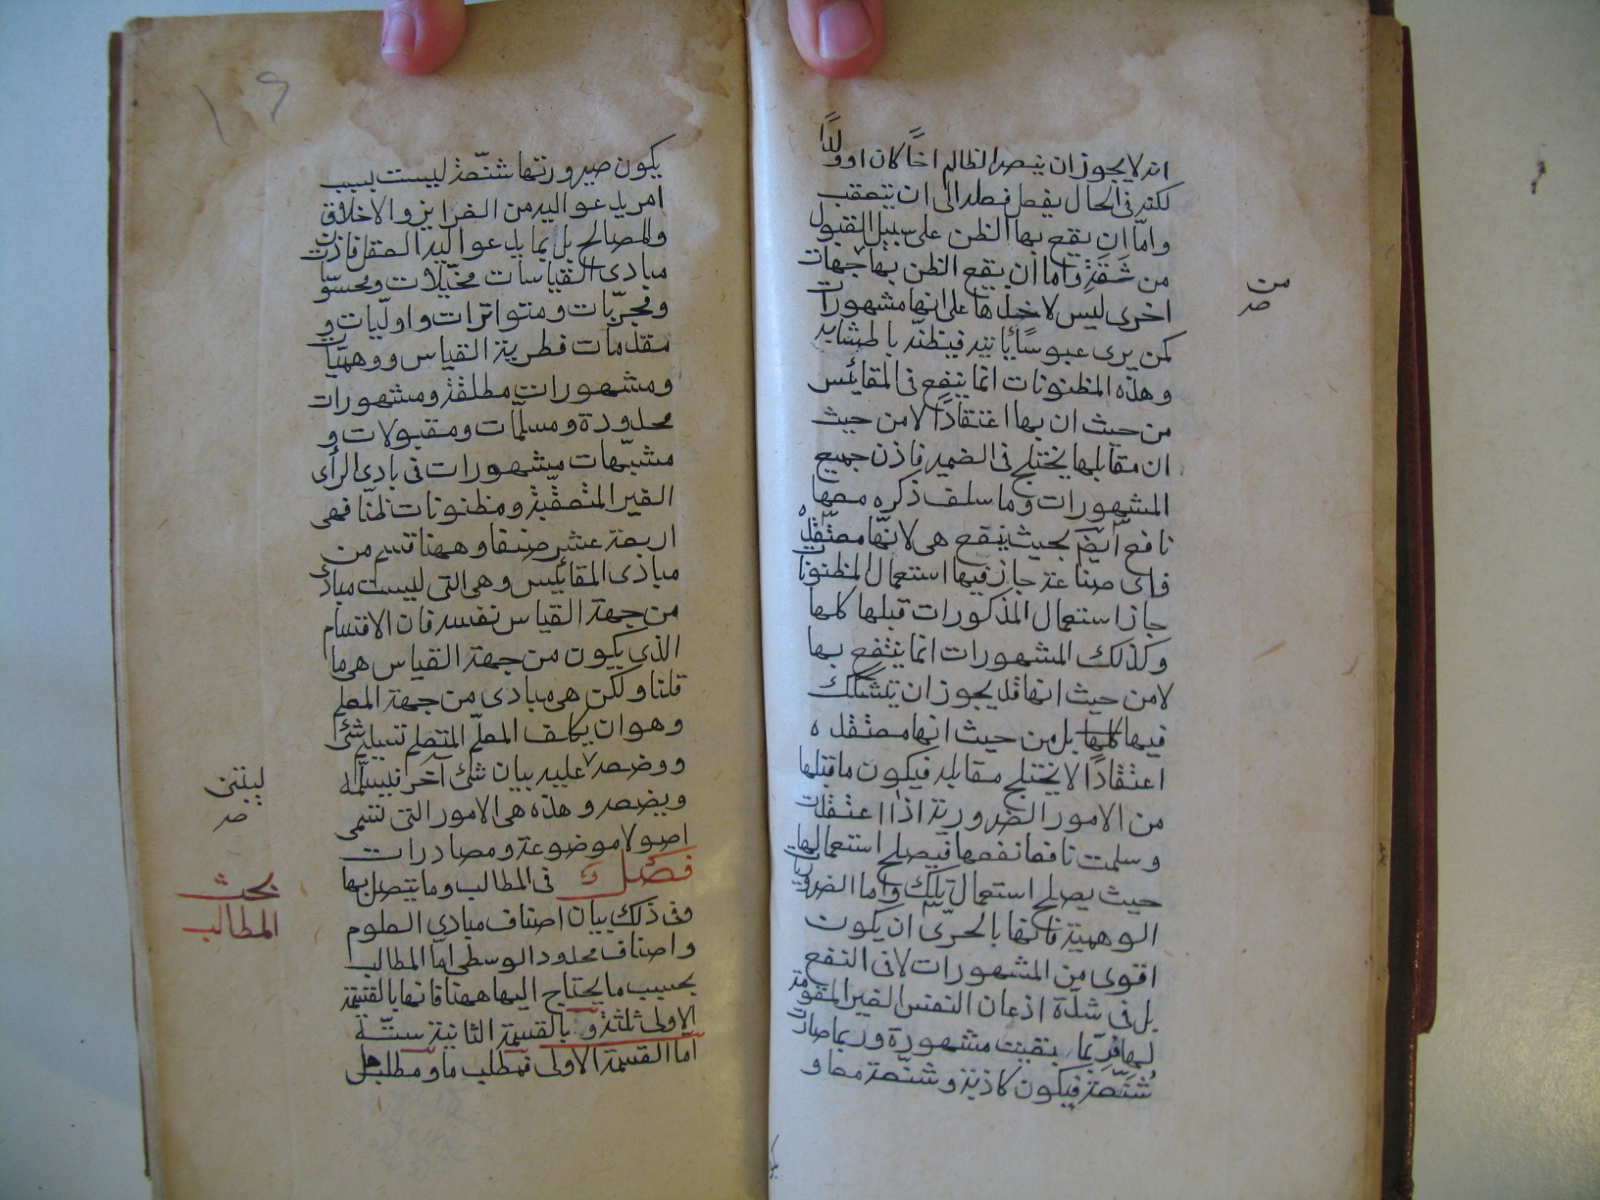 انه لا يجوز ان ينصر الظالم اخاً كان او ولداً
لكنه فى الحال يفعل فعله الى ان يتعقب
واما ان يقع بها الظن على سبيل القبول
من ثقة واما ان يقع الظن بها جهات
من
صح
اخرى ليس لاخلها على انها مشهورات
كمن يرى عبوساً ياتيه فيظنه باطشا به
وهذه المظنونات انما ينفع فى المقائس
من حيث ان بها اعتقاداً لا من حيث
ان مقابلها يختلج فى الضمير فاذن جميع
المشهورات وما سلف ذكره معها
نافع ايضا بحيث ينفع هى لانها معتقده
فاى صناعة جاز فيها استعمال المظنونات
جاز استعمال المذكورات قبلها كلها
وكذلك المشهورات انما ينتفع بها
لا من حيث انها قد يجوز ان يتشكك
فيها كلها بل من حيث انها معتقده
اعتقاداً لا يختلج مقابله فيكون ما قبلها
من الامور الضرورية اذا اعتقدت
وسلمت نافعا نفعها فيصلح استعمالها
حيث يصلح استعمال تلك واما الضروريات
الوهمية فانها بالحرى ان يكون
اقوى من المشهورات لا فى النفع
بل فى شدة اذعان النفس الغير المقومة
لها فربما بقيت مشهورة وربما صارت
شنعة فيكون كاذبة وشنعة معا و
١٩
يكون صيرورتها شنعة ليست بسبب
امر يدعو اليه من الغرايز والاخلاق
والمصالح بل بما يدعو اليه العقل فاذن
مبادى القياسات مخيلات ومحسوسات
ومجربات ومتواترات واوليات و
مقدمات فطرية القياس ووهميات
ومشهورات مطلقة ومشهورات
محدودة ومسلمات ومقبولات و
مشبهات مشهورات فى بادى الرأى
الغير المتعقبة ومظنونات ظنا فهى
اربعة عشر صنفا وههنا قسم من
مبادى المقائيس وهى التى ليست مبادى
من جهة القياس نفسه فان الاقسام
الذى يكون من جهة القياس هى ما
قلنا ولكن هى مبادى من جهة المعلم
وهو ان يكلف المعلم المتعلم تسليم شئ
ووضعه عليه بيان شئ آخر فيسلمه
ليبتنى
صح
ويضعه وهذه هى الامور التى تسمى
اصولا موضوعة ومصادرات
فصل فى المطالب وما يتصل بها
بحث
المطالب
وفى ذلك بيان اصناف مبادى العلوم
واصناف محدود الوسطى اما المطالب
بحسب ما يحتاج اليها ههنا فانها بالقسمة
الاولى ثلثة وبالقسمة الثانية ستة
اما القسمة الاولى فمطلب ما ومطلب هل